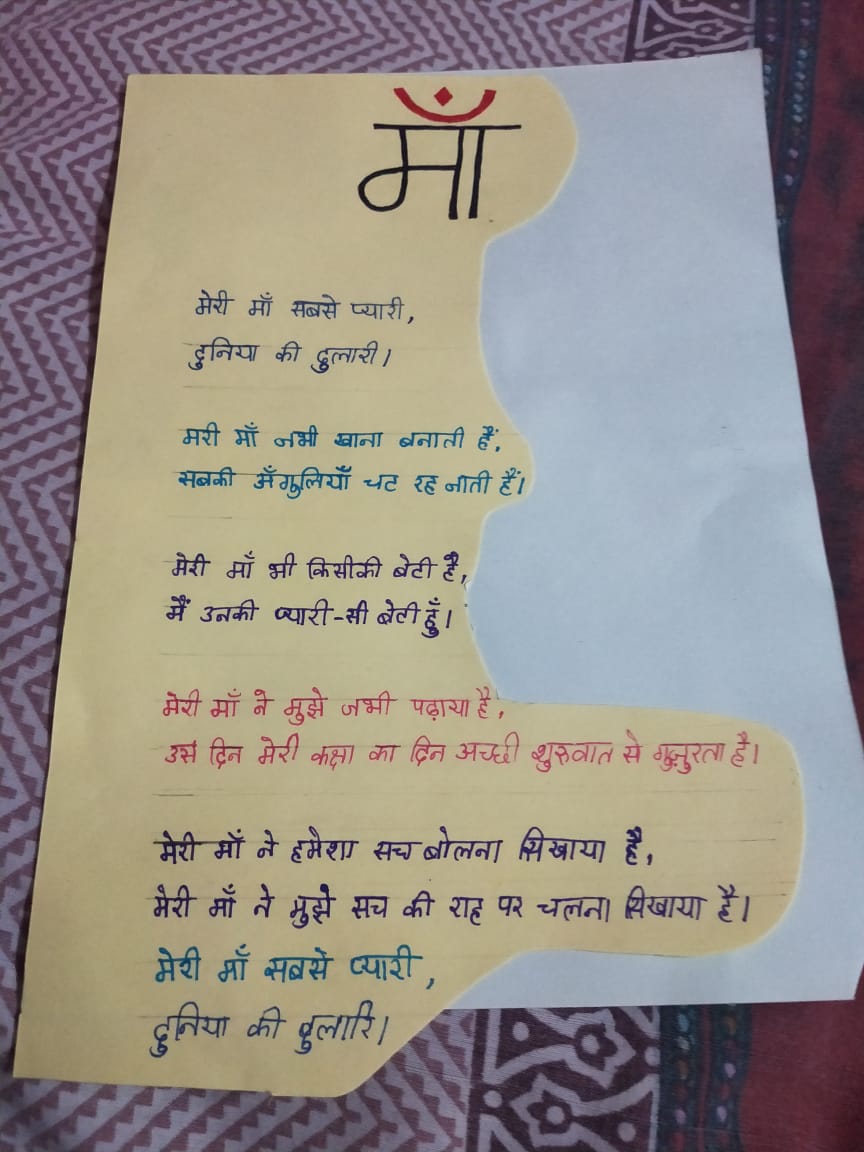 माँ
मेरी माँ सबसे प्यारी,
दुनिया की दुलारी।
मेरी माँ जभी खाना बनाती हैं,
सबकी अँगुलियाँ चट रह जाती हैं।
मेरी माँ भी किसीकी बेटी है,
मैं उनकी प्यारी-सी बेटी हुँ।
मेरी माँ ने मुझे जभी पढ़ाया है,
उस दिन मेरी कक्षा का दिन अच्छी शुरुवात से गुज़ुरता है।
मेरी माँ ने हमेशा सच बोलना सिखाया है,
मेरी माँ ने मुझे सच की राह पर चलना सिखाया है।
मेरी माँ सबसे प्यारी,
दुनिया की दुलारि।